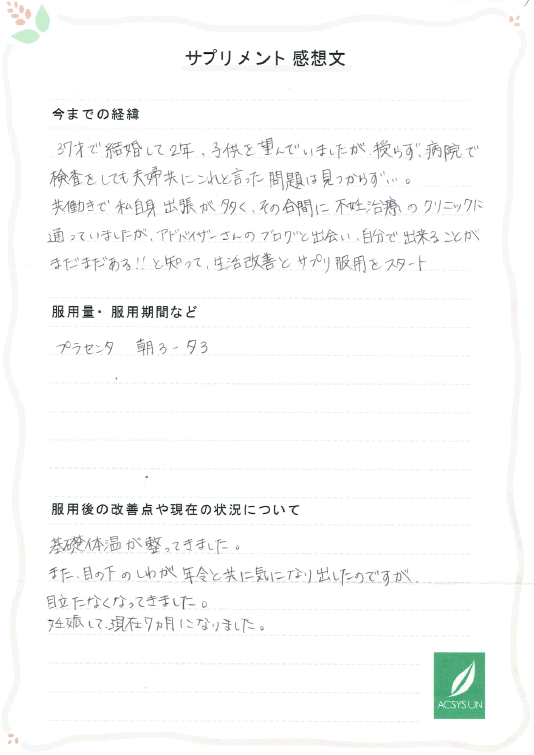 サプリメント 感想文
今までの経緯
37才で結婚して2年、子供を望んでいましたが、授らず、病院で
検査をしても夫婦共にこれと言った問題は見つからず…。
共働きで私自身出張が多く、その合間に不妊治療のクリニックに
通っていましたが、アドバイザーさんのブログと出会い、自分で出来ることが
まだまだある!!と知って、生活改善とサプリ服用をスタート
服用量・服用期間など
プラセンタ 朝3-夕3
服用後の改善点や現在の状況について
基礎体温が整ってきました。
また、目の下のしわが年令と共に気になり出したのですが、
目立たなくなってきました。
妊娠して、現在7カ月になりました。
ACSYSUN